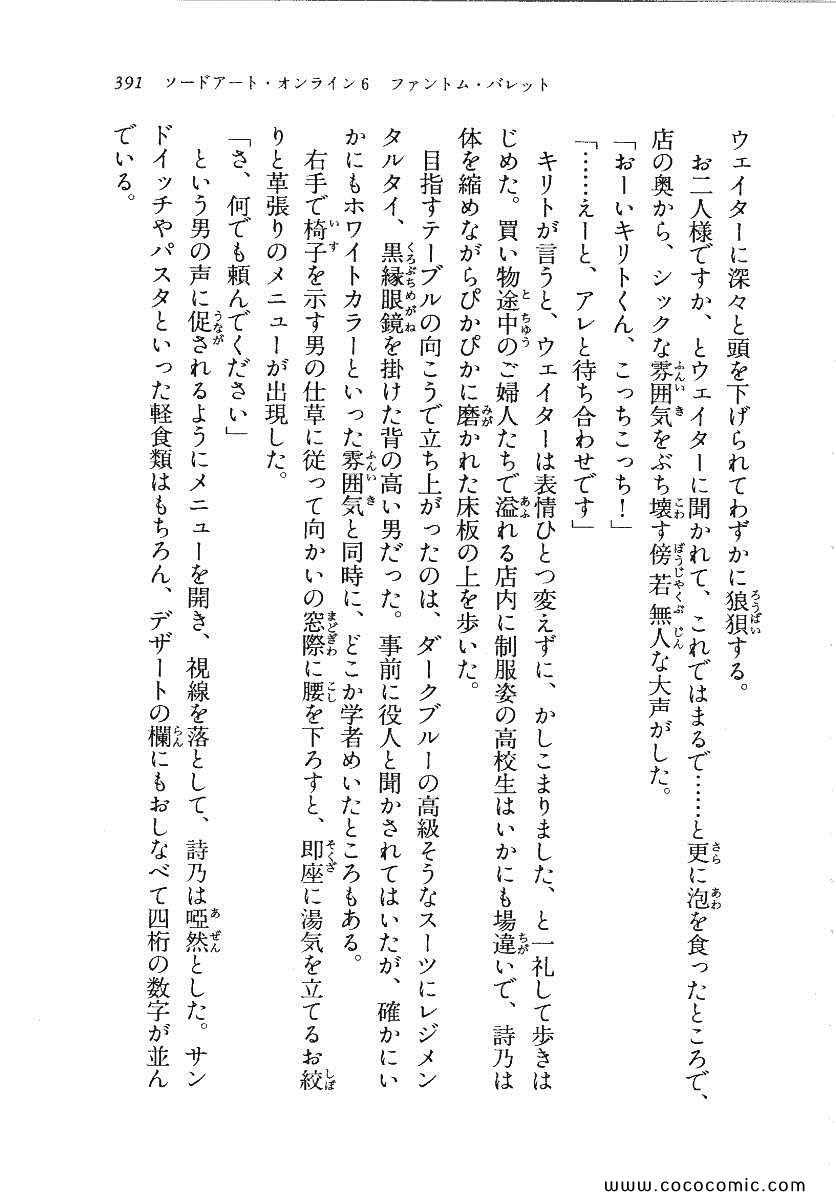 391　ソードアート・オンライン6　ファントム・バレット
ウェイターに深々と頭を下げられてわずかに狼狽する。
　お二人様ですか、とウェイターに聞かれて、これではまるで……と更に泡を食ったところで、
店の奥から、シックな雰囲気をぶち壊す傍若無人な大声がした。
「おーいキリトくん、こっちこっち！」
「……えーと、アレと待ち合わせです」
　キリトが言うと、ウェイターは表情ひとつ変えずに、かしこまりました、と一礼して歩きは
じめた。買い物途中のご婦人たちで溢れる店内に制服姿の高校生はいかにも場違いで、詩乃は
体を縮めながらぴかぴかに磨かれた床板の上を歩いた。
　目指すテーブルの向こうで立ち上がったのは、ダークブルーの高級そうなスーツにレジメン
タルタイ、黒縁眼鏡を掛けた背の高い男だった。事前に役人と聞かされてはいたが、確かにい
かにもホワイトカラーといった雰囲気と同時に、どこか学者めいたところもある。
　右手で椅子を示す男の仕草に従って向かいの窓際に腰を下ろすと、即座に湯気を立てるお絞
りと革張りのメニューが出現した。
「さ、何でも頼んでください」
　という男の声に促されるようにメニューを開き、視線を落として、詩乃は啞然とした。サン
ドイッチやパスタといった軽食類はもちろん、デザートの欄にもおしなべて四桁の数字が並ん
でいる。
www.cococomic.com